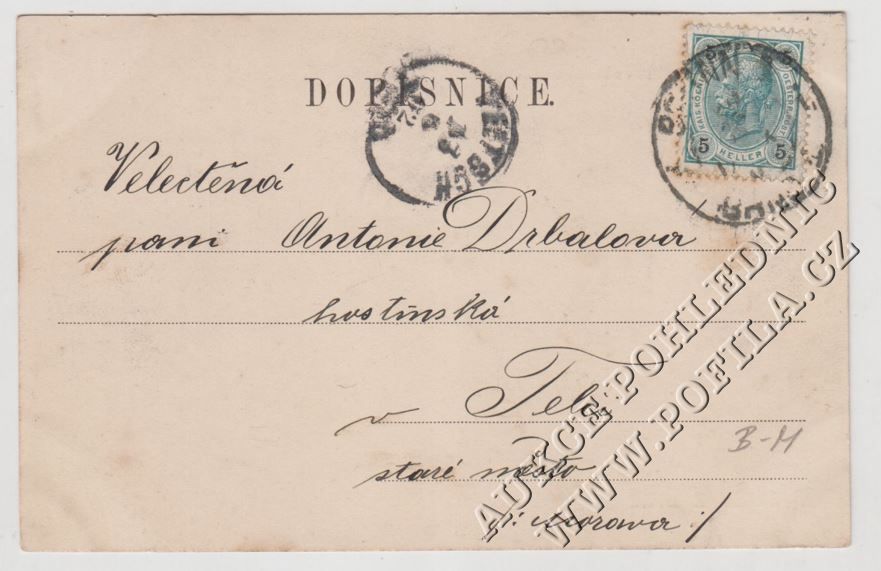 DOPISNICE.
Velectěná
paní Antonie Drbalova
hostinská
v Telči
staré město
/: Morava :/
B-M
5 5
HELLER
AUKCE POHLEDNIC
WWW.POFILA.CZ